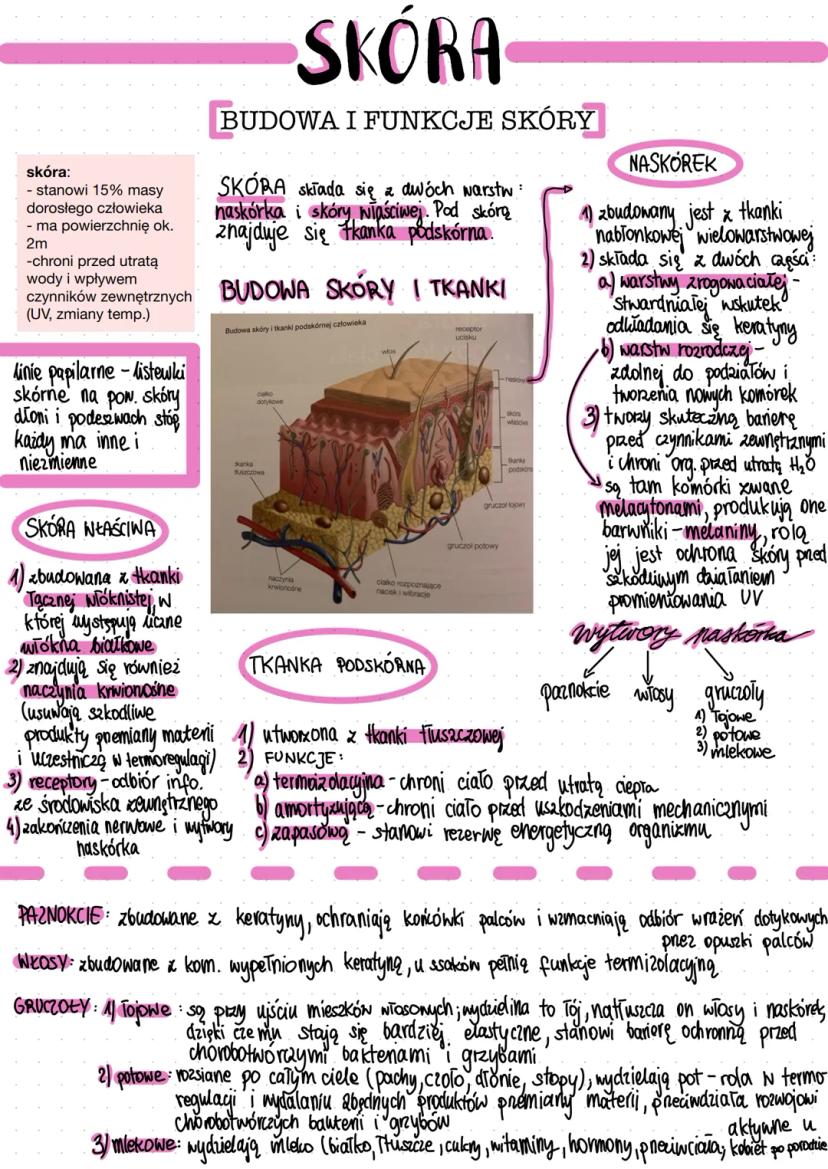 SKÓRA
BUDOWA I FUNKCJE SKÓRY
skóra:
- stanowi 15% masy
dorosłego człowieka
- ma powierzchnię ok.
2m
-chroni przed utratą
wody i wpływem
czynników zewnętrznych
(UV, zmiany temp.)
linie papilarne - listewki
skórne na pow. skóry
dłoni i podeszwach stóp
każdy ma inne i
niezmienne
SKÓRA WŁAŚCIWA
1) zbudowana z tkanki
łącznej włóknistej, w
której występują liczne
włókna białkowe
2) znajdują się również
naczynia krwionośne
(usuwają szkodliwe
produkty przemiany materii
i uczestniczą w termoregulacji)
3) receptory - odbiór info.
ze środowiska zewnętrznego
4) zakończenia nerwowe i wytwory
naskórka
SKÓRA składa się z dwóch warstw:
naskórka i skóry właściwej. Pod skórą
znajduje się tkanka podskórna.
BUDOWA SKÓRY I TKANKI
Budowa skóry i tkanki podskórnej człowieka
receptor
ucisku
włos
naskórek
ciałko
dotykowe
skóra
właściwa
tkanka
tłuszczowa
tkanka
podskórna
gruczoł łojowy
gruczoł potowy
naczynia
krwionośne
ciałko rozpoznające
nacisk i wibracje
TKANKA PODSKÓRNA
1) utworzona z tkanki tłuszczowej
2) FUNKCJE:
a) termoizolacyjna - chroni ciało przed utratą ciepła
b) amortyzującą - chroni ciało przed uszkodzeniami mechanicznymi
c) zapasową - stanowi rezerwę energetyczną organizmu
NASKÓREK
1) zbudowany jest z tkanki
nabłonkowej wielowarstwowej
2) składa się z dwóch części:
a) warstwy zrogowaciałej -
stwardniałej wskutek
odkładania się keratyny
b) warstw rozrodczej -
zdolnej do podziałów i
tworzenia nowych komórek
3) tworzy skuteczną barierę
przed czynnikami zewnętrznymi
i chroni org. przed utratą H₂O
są tam komórki zwane
melacytonami, produkują one
barwniki - melaniny, rolą
jej jest ochrona skóry przed
szkodliwym działaniem
promieniowania UV
wytwory naskórka
paznokcie włosy gruczoły
1) łojowe
2) potowe
3) mlekowe
PAZNOKCIE: zbudowane z keratyny, ochraniają końcówki palców i wzmacniają odbiór wrażeń dotykowych
przez opuszki palców
WŁOSY: zbudowane z kom. wypełnionych keratyną, u ssaków pełnią funkcje termizolacyjną
GRUCZOŁY: 1) łojowe: są przy ujściu mieszków włosowych; wydzielina to łój, natłuszcza on włosy i naskórek,
dzięki czemu stają się bardziej elastyczne, stanowi barierę ochronną przed
chorobotwórczymi bakteriami i grzybami
2) potowe: rozsiane po całym ciele (pachy, czoło, dłonie, stopy), wydzielają pot - rola w termo
regulacji i wydalaniu zbędnych produktów przemiany materii, przeciwdziała rozwojowi
chorobotwórczych bakterii i grzybów
3) mlekowe: wydzielają mleko (białko, tłuszcze, cukry, witaminy, hormony, przeciwciała; aktywne u
kobiet po porodzie